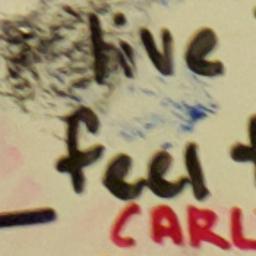 live
feel
CARL